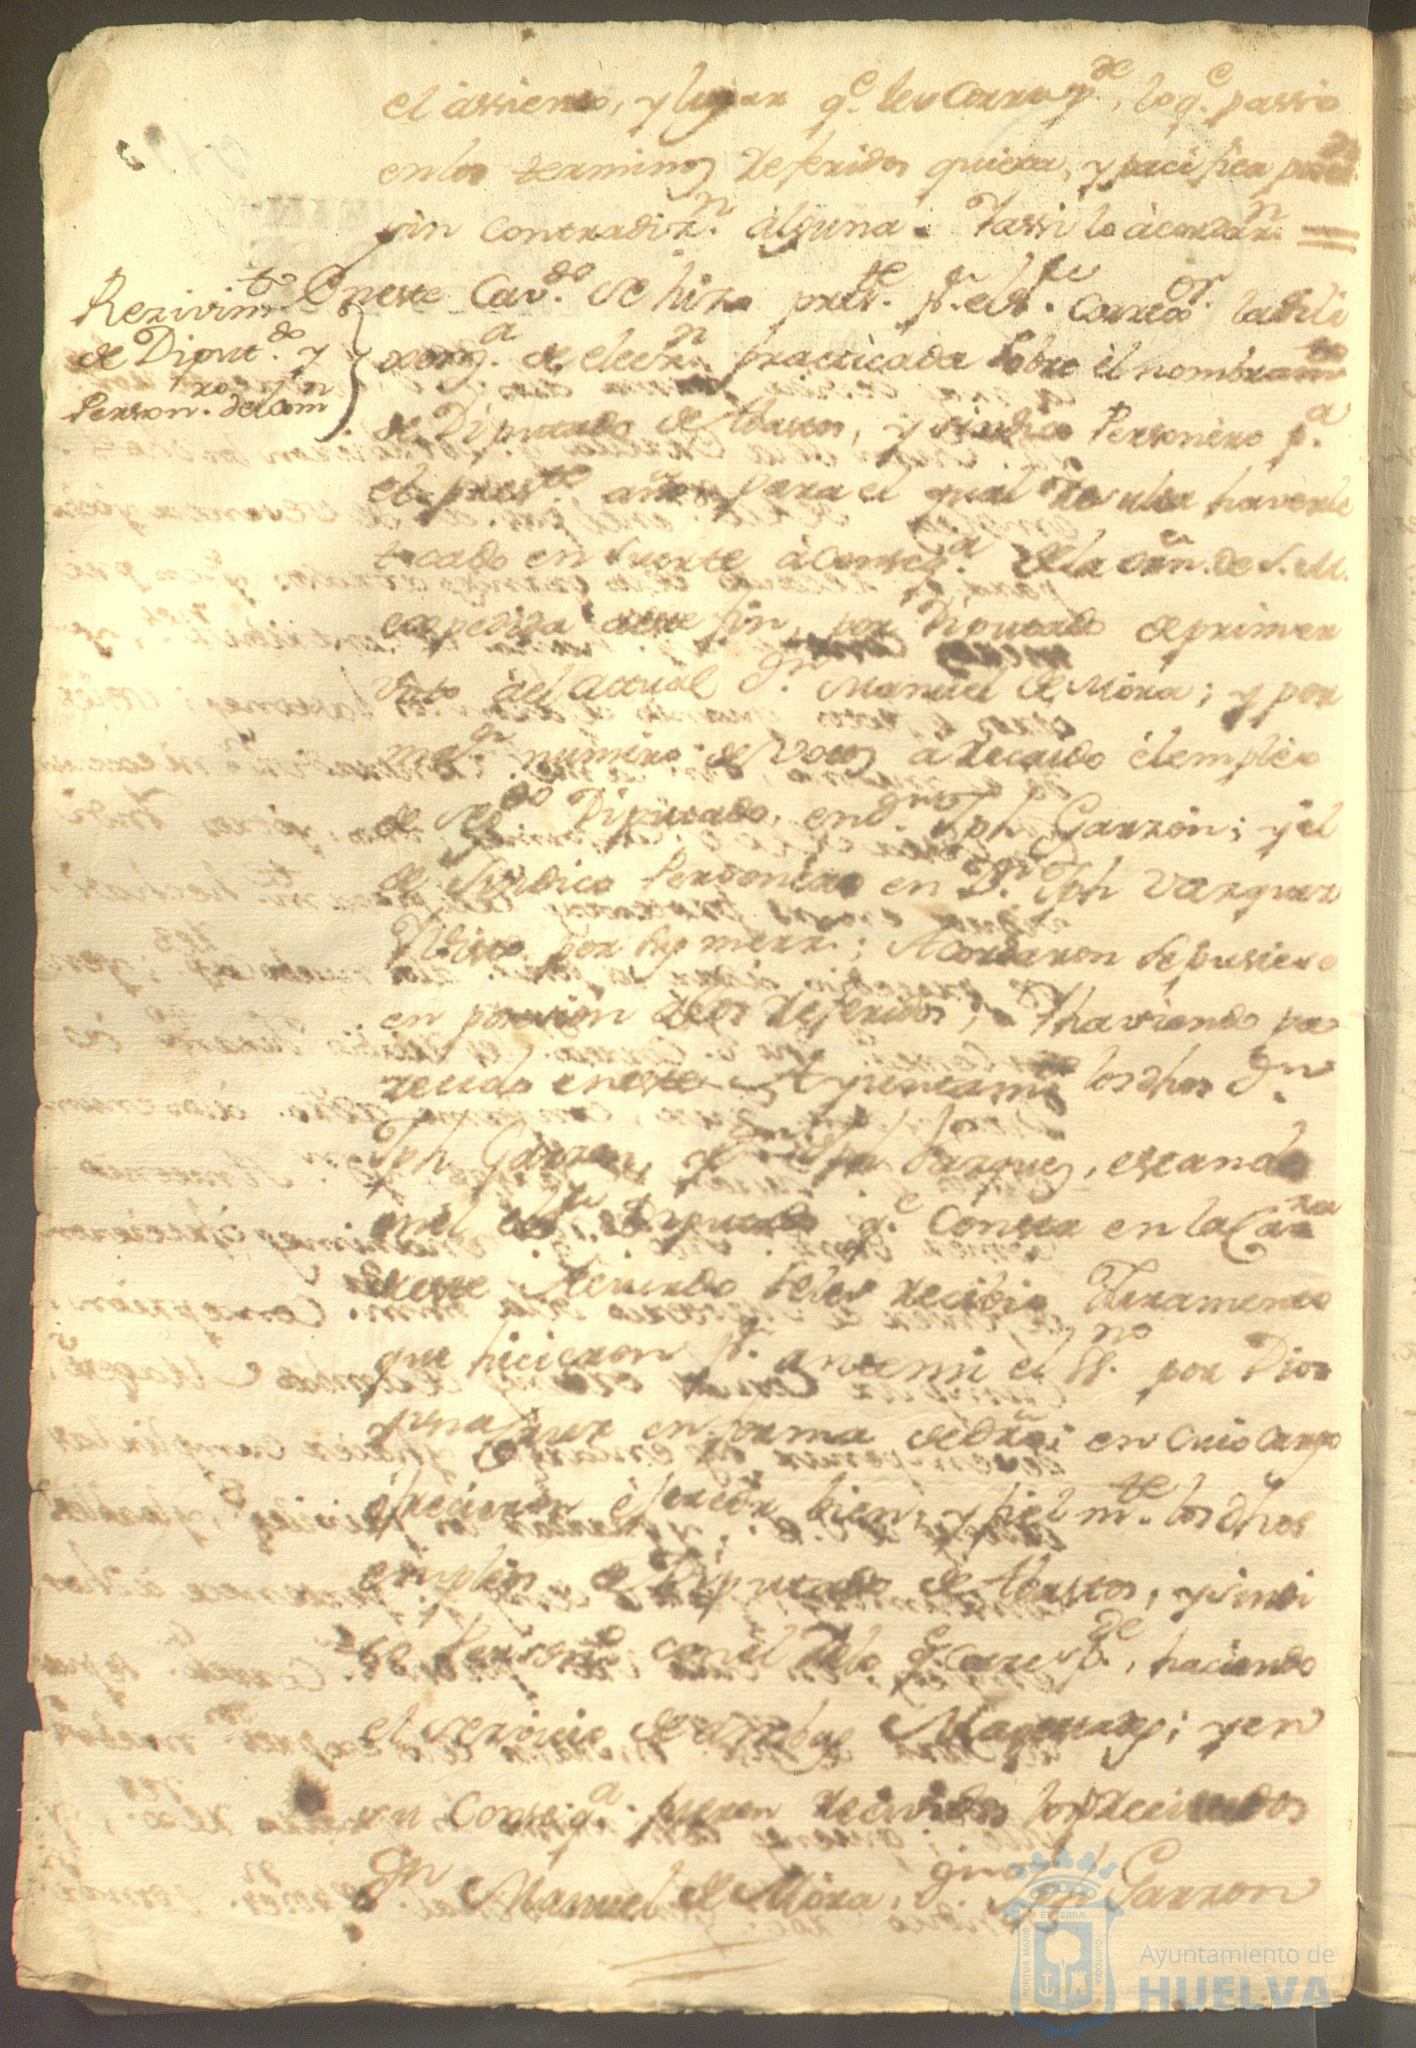 el assiento, y lugar q.e les Corresp.de, lo q.e passo
en los terminos referidos quieta, y pacifica
sin contradiz.n alguna. Yassi lo acordar.n =
Rezivim.to
de Diput.do y
Person.ro del Com.n
En este Cav.do se hizo pres.te p.r el S.r Correg.or la dili
xenz.a de elecz.n practicada sobre el nombram.to
de Diputado de Abastos, y sindico Personero p.a
el pres.te año para el qual resulta haverle
tocado en suerte á Conseq.a de la orn. de S. M.
expedida á este fin, por Diputado de primer
Voto ál Actual D.n Manuel de Mora; y por
mai.or numero de Votos á recaido él empleo
de seg.do Diputado, en D.n Jph Garzon; y el
de Sindico Personero en D.n Jph Vazquez
Visto por sus merz.s; Acordaron se pusiese
en posesion á los referidos; Y haviendo pa
recido en este Ayuntam.to los dhos D.n
Jph Garzon, y D.n Jph Vazquez, estando
en él el Diputado q.e Consta en la Cav.za
de este Acuerdo se les recibio Juramento
que hicieron p.r ante mi el SS.no por Dios
y una Cruz en forma de dro; en cuio cargo
ofrecieron exercer bien, y fielm.te los dhos
empleos de Diputado de Abastos, y sindi
co Person.ro con él de lo q.e Corresp.de, haciendo
el servicio de ambas Magestades; y en
su Conseq.a fueron recividos los precitados
D.n Manuel de Mora, D.n Jph Garzon
PORTUS MARIS
ET TERRÆ
CUSTODIA
Ayuntamiento de
HUELVA